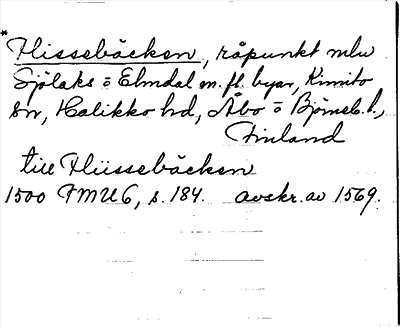 * Hissebäcken, råpunkt mlu
Sjölaks o Elmdal m. fl. byar, Kimito
sn, Halikko hd, Åbo o Björneb. l.,
Finland
till Hiissebäcken
1500 FMU 6, s. 184. avskr. av 1569.